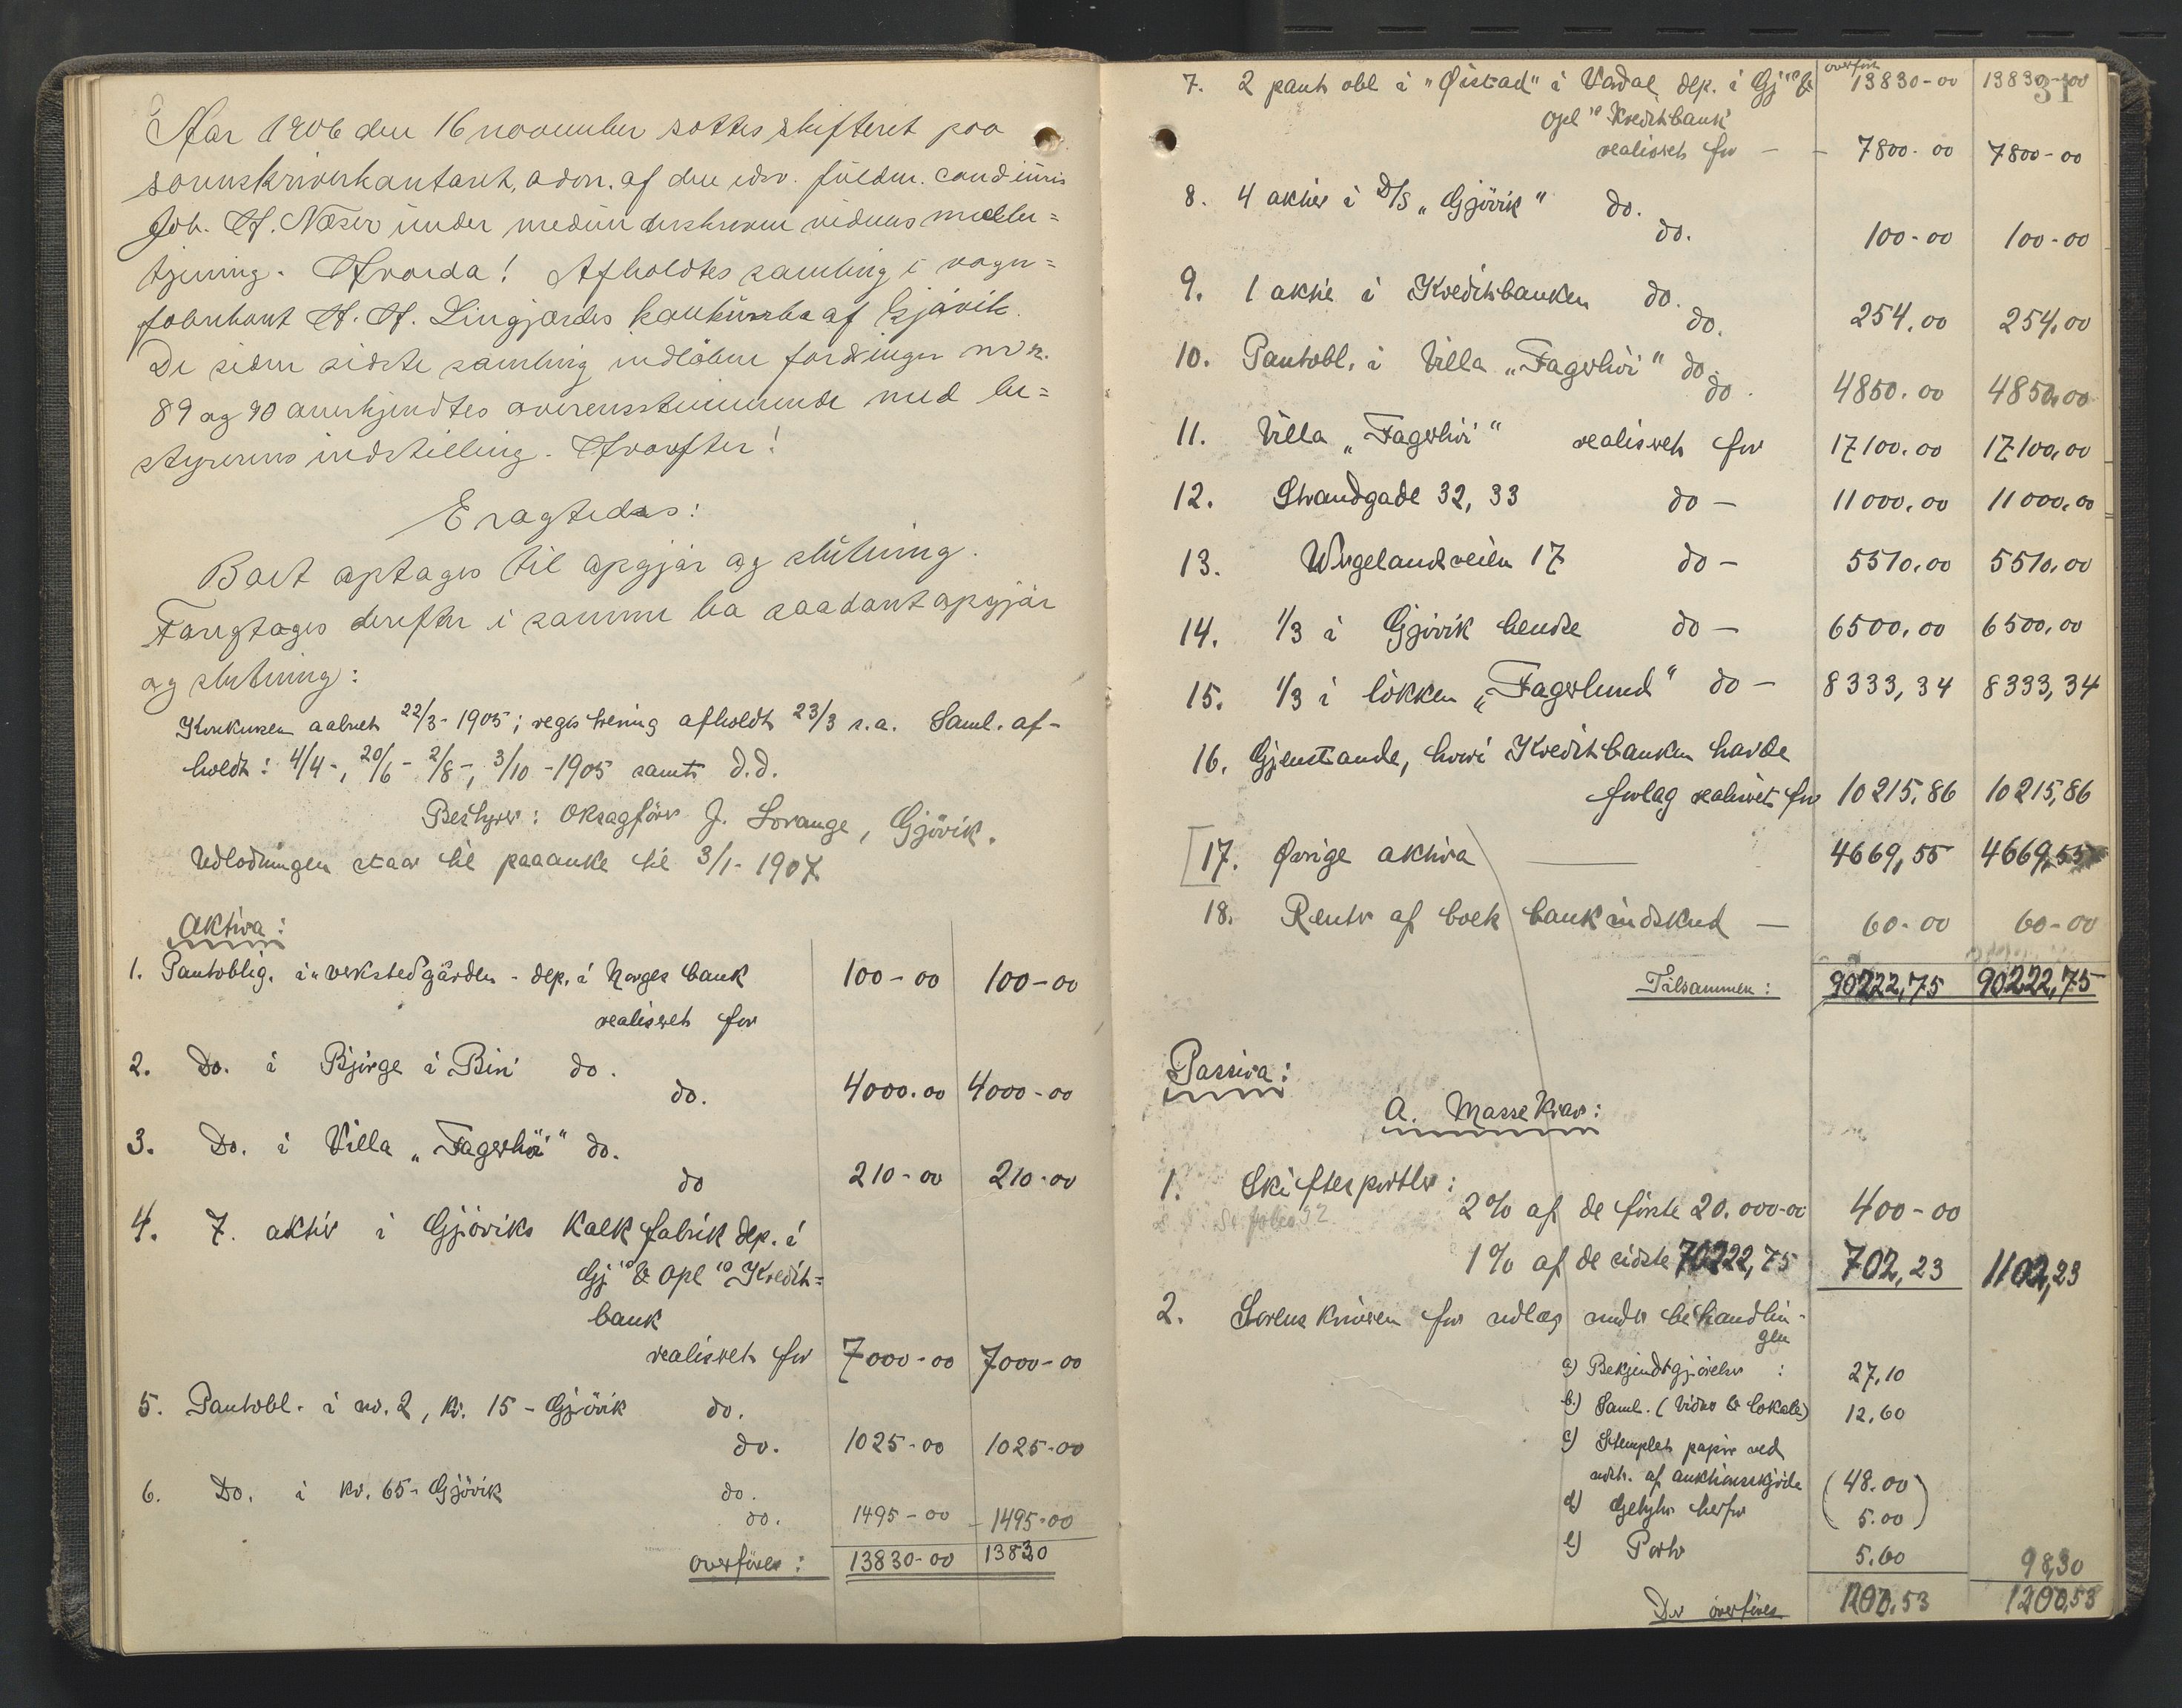 Aar 1906 den 16 november sattes skifteret paa
sorenskriverkontoret, adm. af den edsv. fuldm. cand juris
Joh. H. Næser under medunderskreven vidnes medbe=
tjening. Hvorda! Afholdtes samling i vogn=
fabrikant H. H. Lingjærdes konkursbo af Gjøvik.
De siden sidste samling indløbne fordringer no
89 og 90 anerkjendtes overensstemmende med be=
styrerens indstilling. Hvorefter!
Eragtedes:
Boet optages til opgjør og slutning.
Foregtages derefter i samme bo saadant opgjør
og slutning:
Konkursen aabnet 22/3-1905; registrering afholdt 23/3 s.a. Saml. af-
holdt: 4/4-, 20/6- 2/8-, 3/10-1905 samt d.d.
Bestyrer: Oksagfører J. Lorange, Gjövik.
Udlodningen staar til paaanke til 3/1-1907
Aktiva:
1. Pantoblig. i "verkstedgården - dep. i Norges bank 100-00 100-00
realiseret for
2. Do. i Bjørge i Biri do.
do. 4000.00 4000-00
3. Do. i Villa "Fagerhöi" do.
do 210-00 210-00
4. 7. aktier i Gjöviks Kalkfabrik dep. i
Gj & Opl Kredit=
bank
realiseret for 7000-00 7000-00
5. Pantobl. i no. 2, kv. 15 - Gjövik do.
do. 1025-00 1025-00
6. Do. i kv. 65 - Gjövik do.
do. 1495-00 1495-00
overføres: 13830-00 13830
31
overført
7. 2 pant obl i "Øistad" i Vardal dep. i Gj & 13830-00 13830-00
Opl Kreditbank
realiseret for - 7800-00 7800-00
8. 4 aktier i D/S "Gjövik" do.
do. 100-00 100-00
9. 1 aktie i Kreditbanken do.
do. 254,00 254,00
10. Pantobl. i Villa "Fagerhöi" do
do. 4850.00 4850,00
11. Villa "Fagerhöi" realiseret for 17100.00 17100,00
12. Strandgade 32, 33 do - 11000,00 11000,00
13. Wergelandsveien 17 do - 5510,00 5510,00
14. 1/3 i Gjövik do - 6500,00 6500,00
15. 1/3 i lökken "Fagerlund" do - 8333,34 8333,34
16. Gjenstande, hvori Kreditbanken havde
forlag realiseret for 10215,86 10215,86
[17. Øvrige aktiva 4669,55 4669,55
18. Renter af boets bankindskud - 60-00 60-00
Tilsammen: 90222,75 90222,75
Passiva:
A. Massekrav:
1. Skifteportler:
2% af de første 20.000-00 400-00
1% af de sidste 70222,75 702,23 1102,23
2. Sorenskriveren for udlæg under behandlin-
gen
a) Bekjendtgjørelser : 27,10
b) Saml. (vidner & lokale) 12,60
c) Stemplet papir ved
udst. af auktionsskjøde (48.00)
d) Gebyhr herfor (5.00)
e) Porto 5.60 98,30
Der overføres 1200,53 1200,53